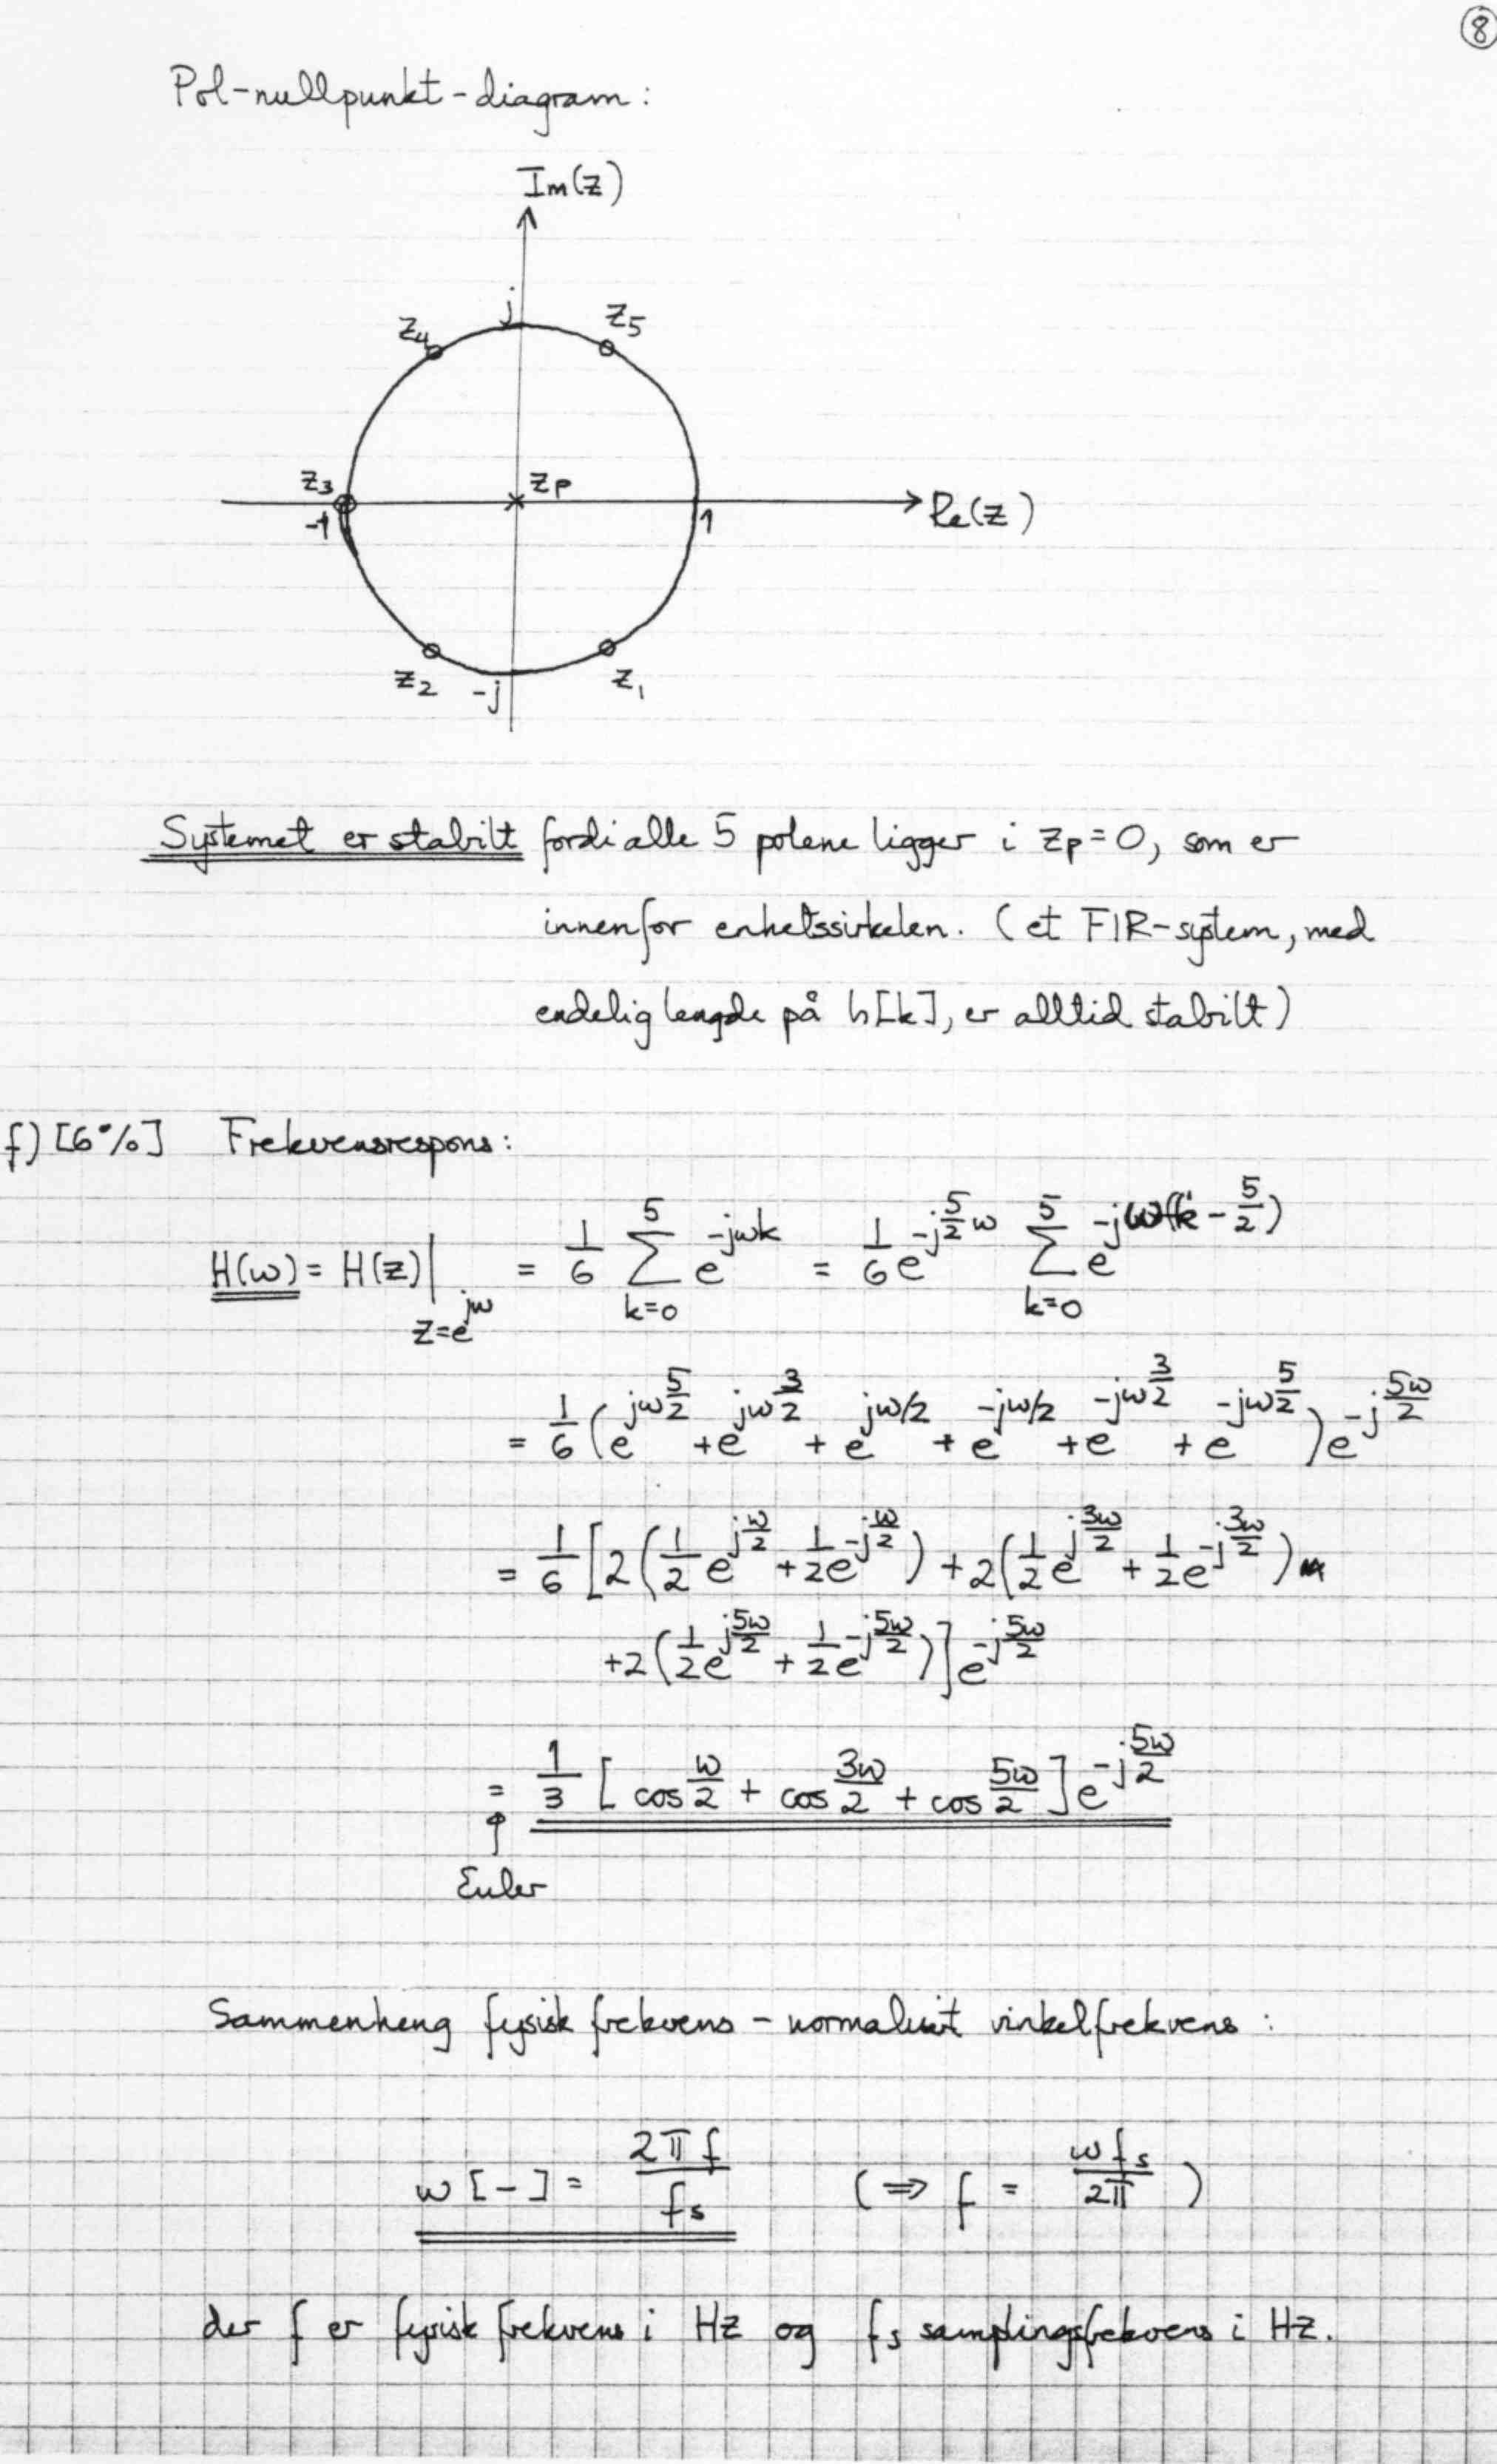 ⑧
Pol-nullpunkt-diagram:
Im(z)
j
z₄
z₅
z₃
-1
zₚ
1
Re(z)
z₂
-j
z₁
Systemet er stabilt fordi alle 5 polene ligger i zₚ=0, som er
innenfor enhetssirkelen. (et FIR-system, med
endelig lengde på h[k], er alltid stabilt)
f) [6%] Frekvensrespons:
H(ω) = H(z)|_{z=e^{jω}} = 1/6 Σ_{k=0}^{5} e^{-jωk} = 1/6 e^{-j5/2ω} Σ_{k=0}^{5} e^{-jω(k-5/2)}
= 1/6 (e^{jω5/2} + e^{jω3/2} + e^{jω/2} + e^{-jω/2} + e^{-jω3/2} + e^{-jω5/2}) e^{-j5ω/2}
= 1/6 [2(1/2 e^{jω/2} + 1/2 e^{-jω/2}) + 2(1/2 e^{j3ω/2} + 1/2 e^{-j3ω/2})
+2(1/2 e^{j5ω/2} + 1/2 e^{-j5ω/2})] e^{-j5ω/2}
= 1/3 [cos ω/2 + cos 3ω/2 + cos 5ω/2] e^{-j5ω/2}
↑
Euler
Sammenheng fysisk frekvens - normalisert vinkelfrekvens:
ω [-] = 2πf/fₛ (⇒ f = ωfₛ/2π)
der f er fysisk frekvens i Hz og fₛ samplingsfrekvens i Hz.